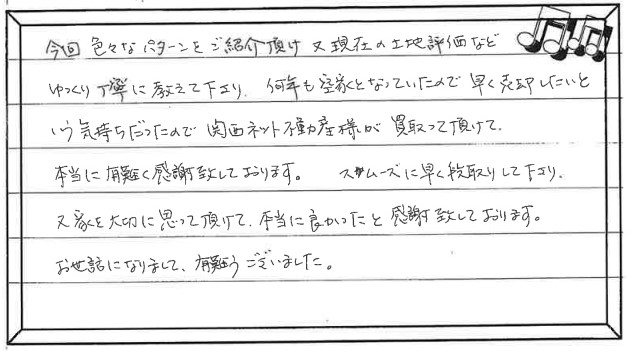 今回 色々なパターンをご紹介頂け 又現在の土地評価など
ゆっくり丁寧に教えて下さり、何年も空家となっていたので早く売却したいと
いう気持ちだったので 関西ネット不動産様が買取って頂けて、
本当に有難く感謝致しております。 スムーズに早く段取りして下さり、
又家を大切に思って頂けて、本当に良かったと感謝致しております。
お世話になりまして、有難うございました。